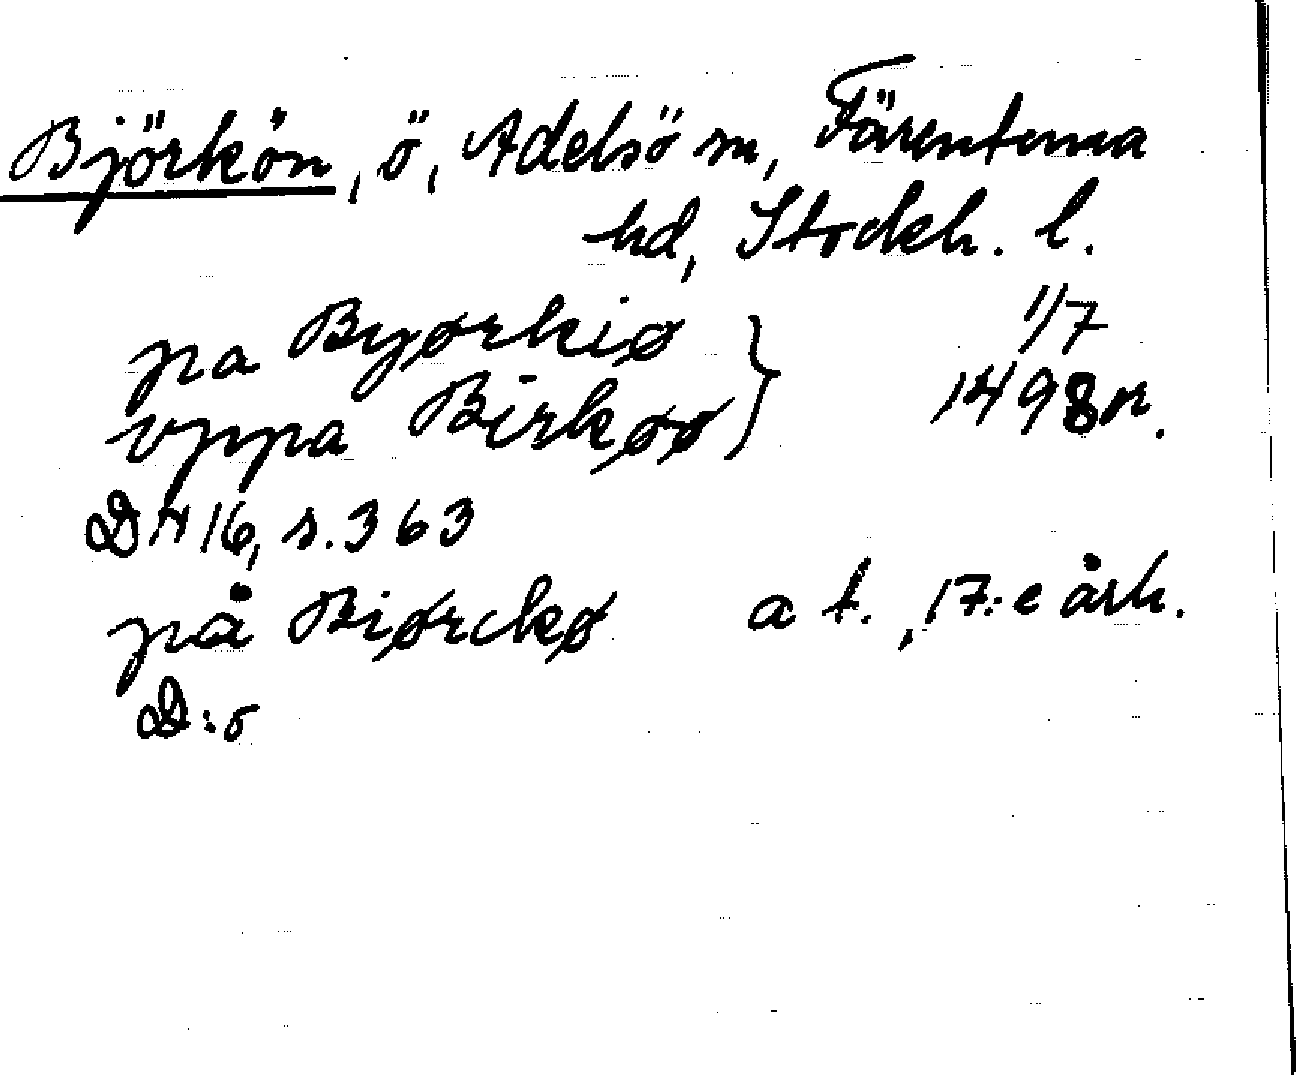 Björkön, ö, Adelsö sn, Färentuna
hd, Stockh. l.
pa Byørkiø } 1/7
vppa Birkøø } 1498 or.
DN 16, s. 363
på Biørckø a t., 17:e årh.
D:o